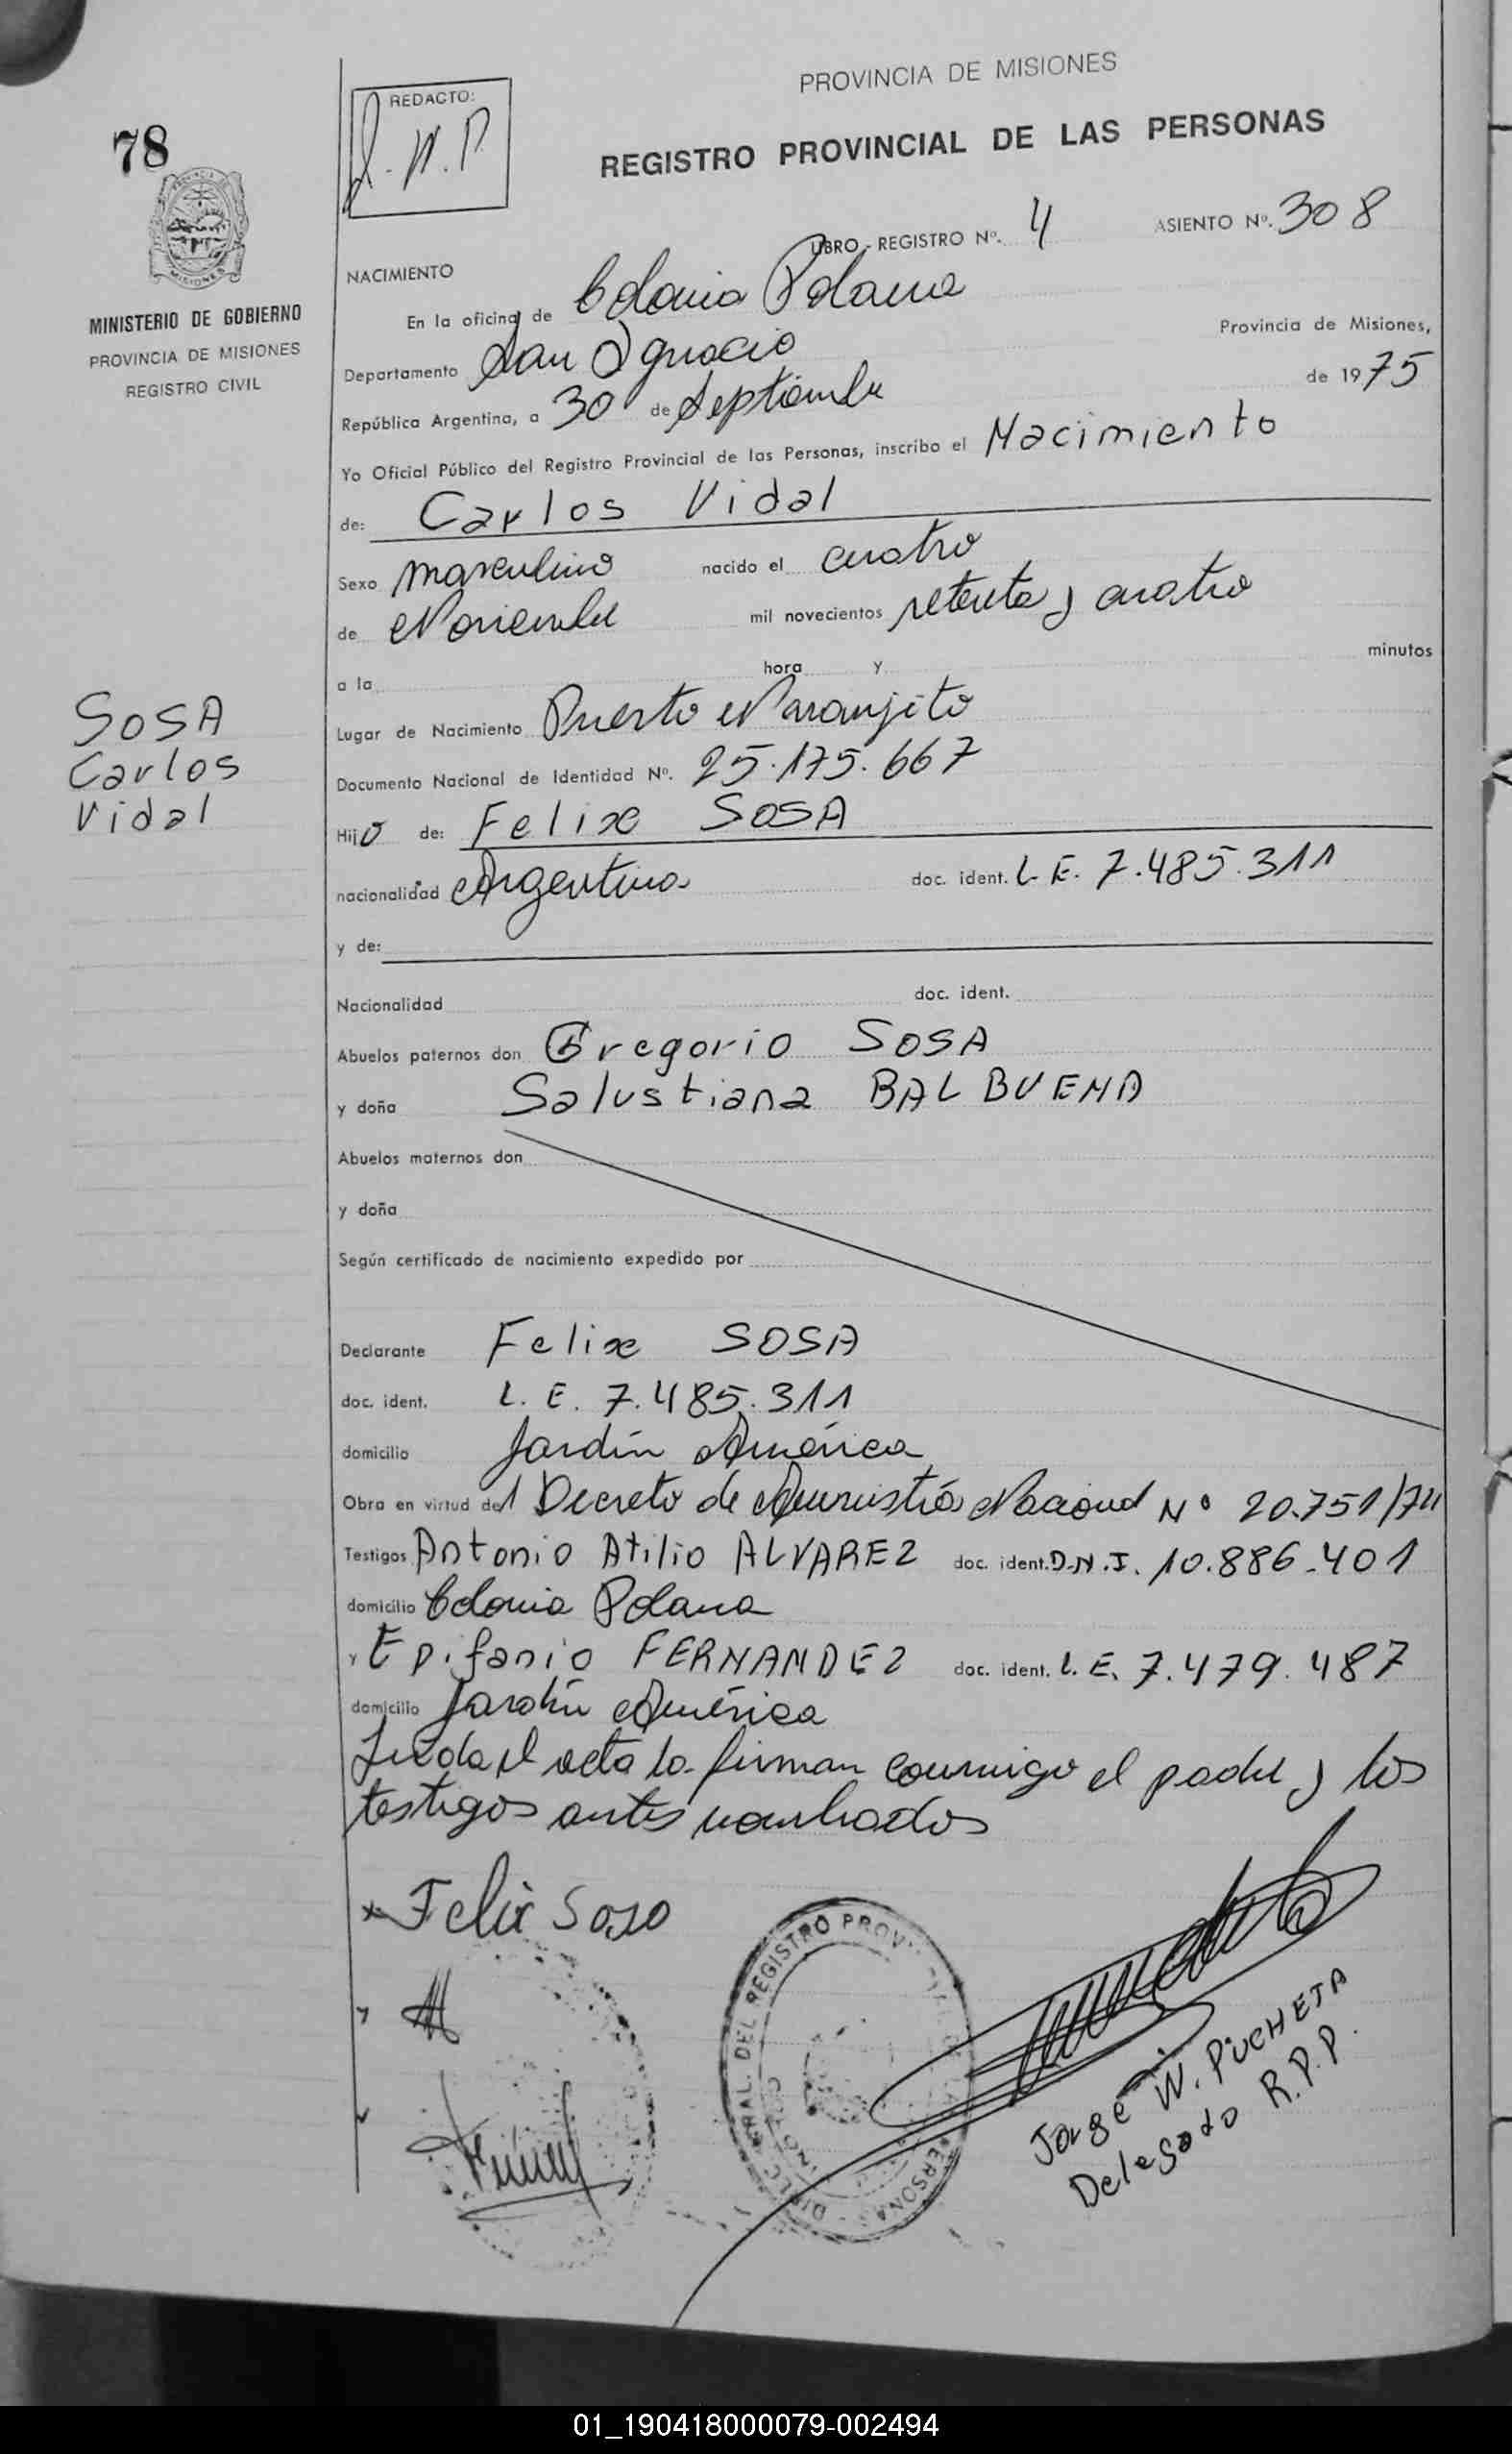 78
REDACTO:
J. W. P.
PROVINCIA DE MISIONES
REGISTRO PROVINCIAL DE LAS PERSONAS
LIBRO - REGISTRO Nº. 4 ASIENTO Nº. 308
PROVINCIA DE
MISIONES
MINISTERIO DE GOBIERNO
PROVINCIA DE MISIONES
REGISTRO CIVIL
NACIMIENTO
En la oficina de Colonia Polana
Departamento San Ignacio Provincia de Misiones,
República Argentina, a 30 de Septiembre de 1975
Yo Oficial Público del Registro Provincial de las Personas, inscribo el Nacimiento
de: Carlos Vidal
Sexo masculino nacido el cuatro
de Noviembre mil novecientos setenta y cuatro
a la hora y minutos
SOSA
Carlos
Vidal
Lugar de Nacimiento Puerto Naranjito
Documento Nacional de Identidad Nº. 25.175.667
Hijo de: Felix SOSA
nacionalidad Argentina doc. ident. L. E. 7.485.311
y de:
Nacionalidad doc. ident.
Abuelos paternos don Gregorio SOSA
y doña Salustiana BALBUENA
Abuelos maternos don
y doña
Según certificado de nacimiento expedido por
Declarante Felix SOSA
doc. ident. L. E. 7.485.311
domicilio Jardín América
Obra en virtud del Decreto de Amnistía Nacional Nº 20.751/74
Testigos Antonio Atilio ALVAREZ doc. ident. D.N.I. 10.886.401
domicilio Colonia Polana
y Epifanio FERNANDEZ doc. ident. L. E. 7.479.487
domicilio Jardín América
Leída el acta la firman conmigo el padre y los
testigos antes nombrados
x Felix Soso
DIREC. GRAL. DEL REGISTRO PROV. DE LA PERSONAS
Jorge W. PUCHETA
Delegado R.P.P.
01_190418000079-002494